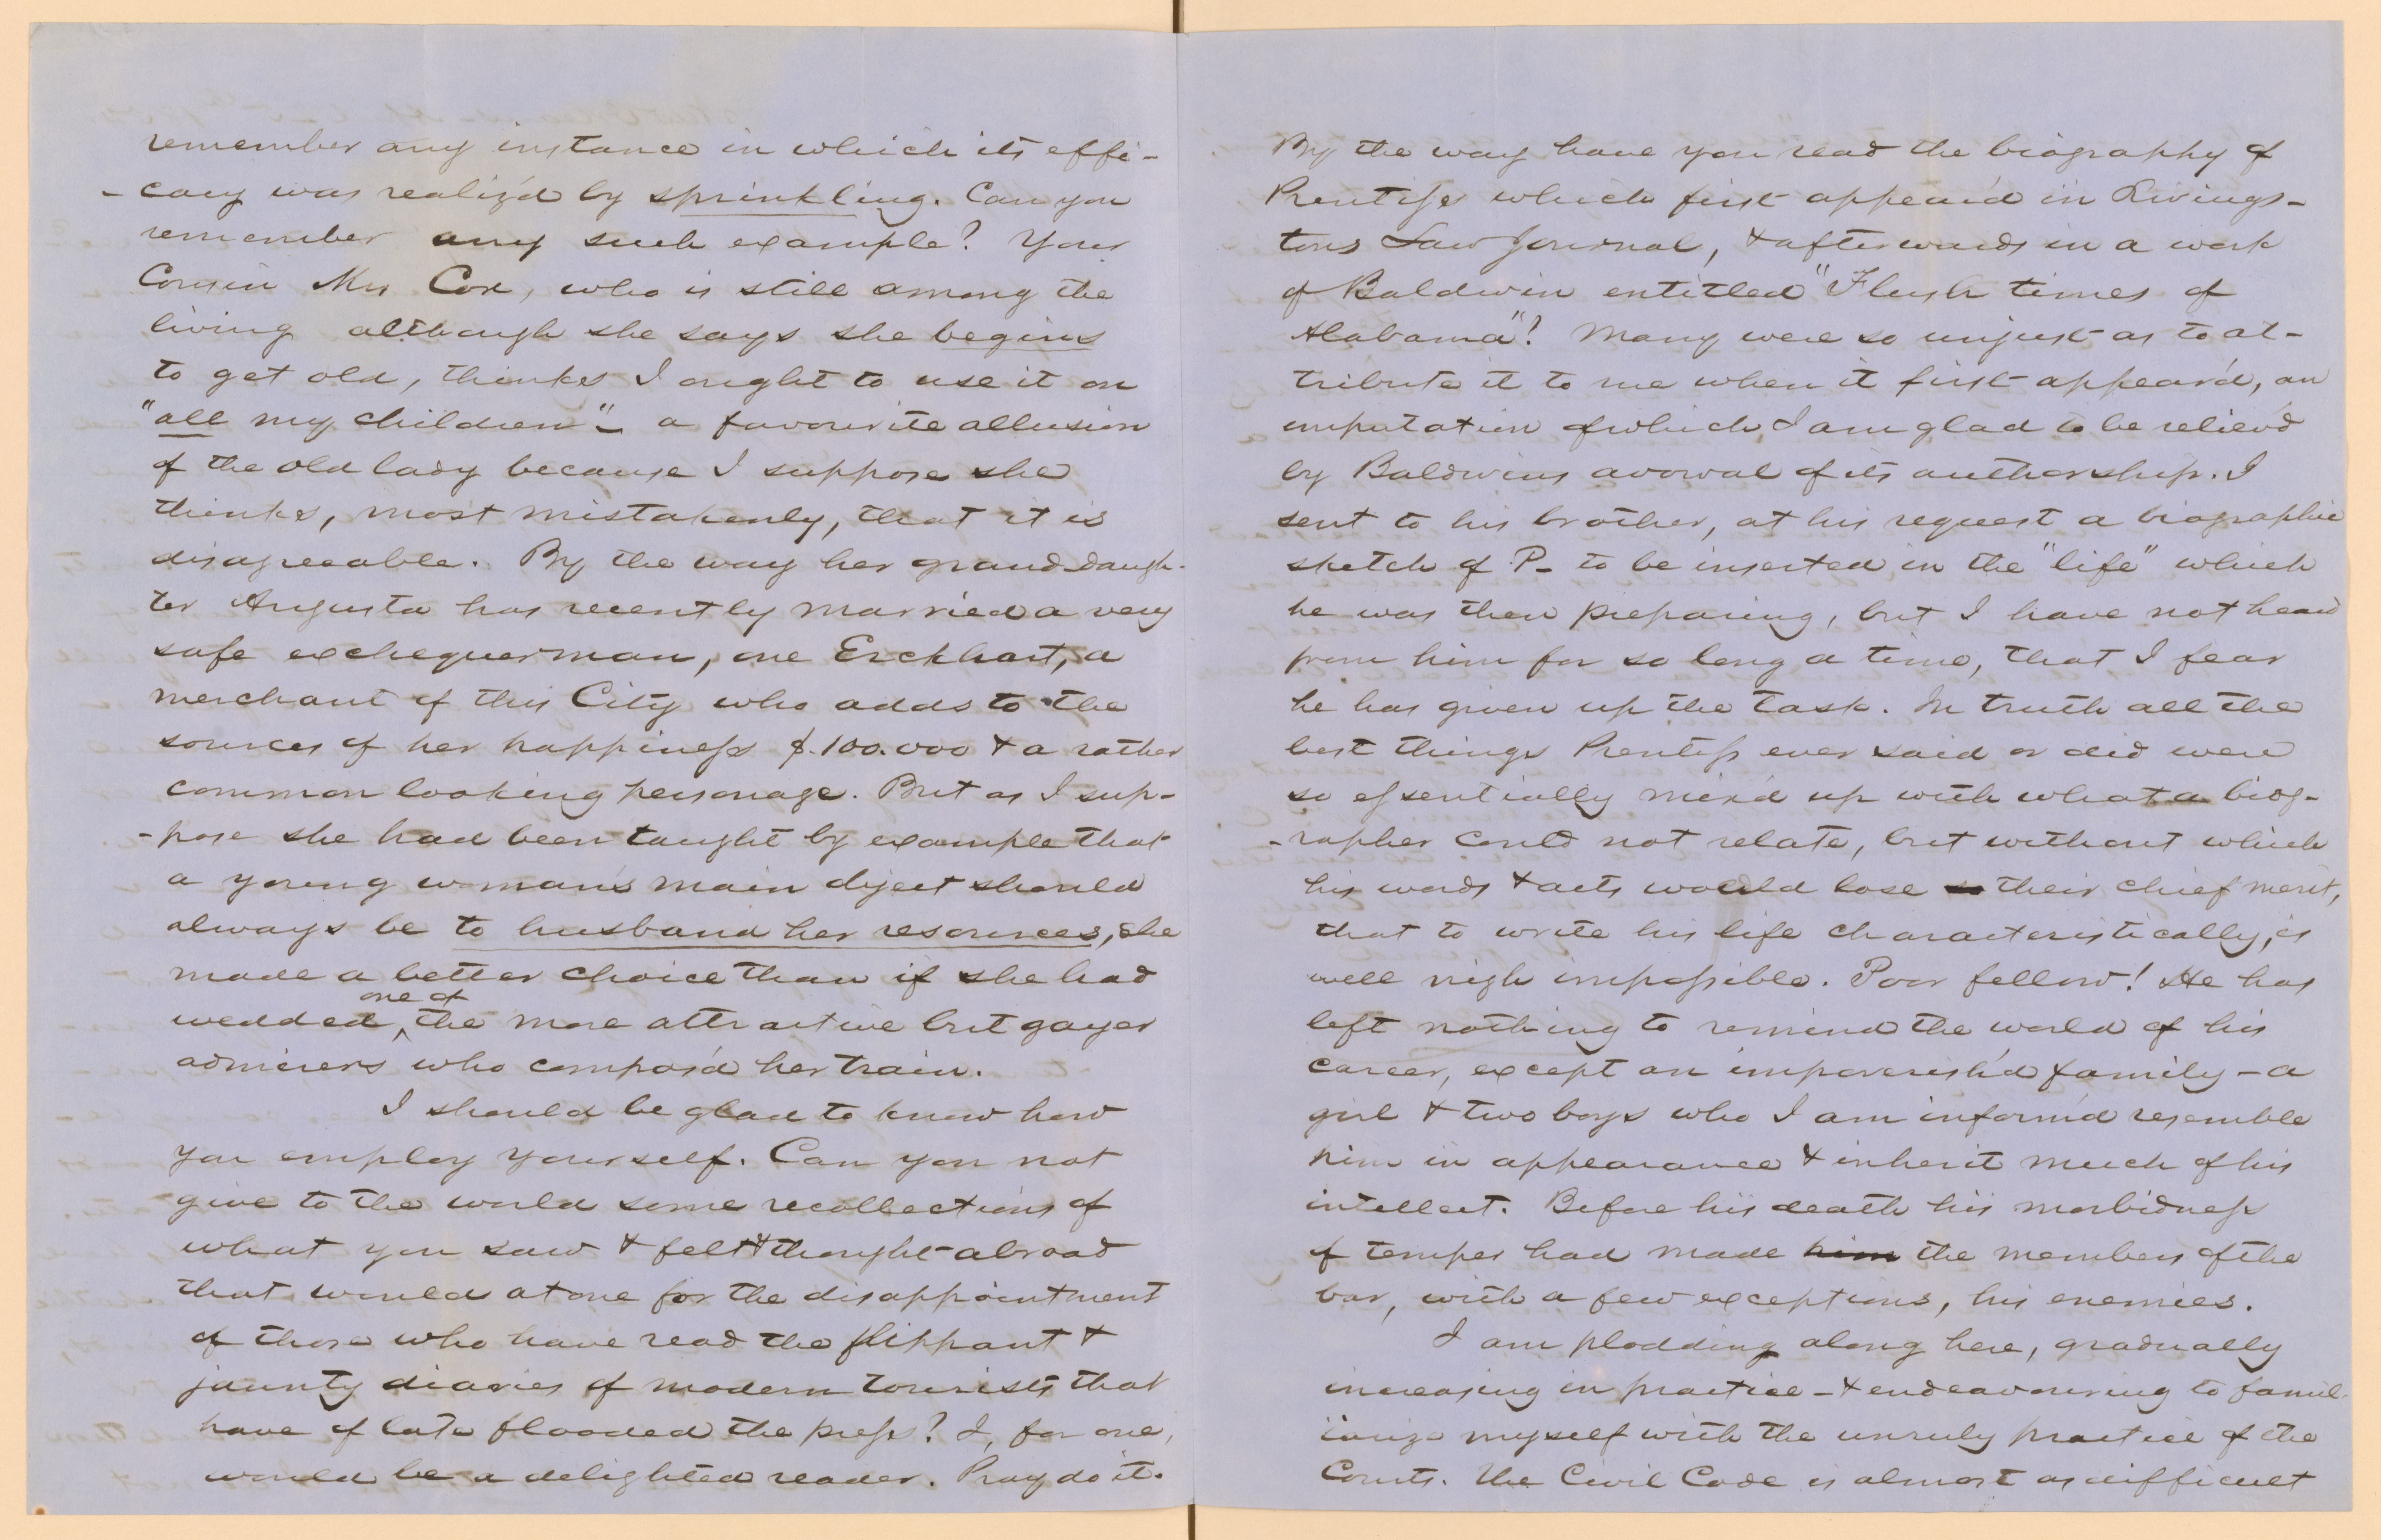 remember any instance in which its effi-
-cacy was realiz'd by sprinkling. Can you
remember any such example? Your
Cousin Mrs Cox, who is still among the
living although she says she begins
to get old, thinks I ought to use it on
"all my children" - a favourite allusion
of the old lady because I suppose she
thinks, most mistakenly, that it is
disagreeable. By the way her grand-daugh-
ter Augusta has recently married a very
safe exchequerman, one Erckhart, a
merchant of this City who adds to the
sources of her happiness $.100.000 & a rather
common looking personage. But as I sup-
-pose she had been taught by example that
a young woman's main object should
always be to husband her resources, she
made a better choice than if she had
wedded one of the more attractive but gayer
admirers who compos'd her train.
I should be glad to know how
you employ yourself. Can you not
give to the world some recollections of
what you saw & felt & thought abroad
that would atone for the disappointment
of those who have read the flippant &
jaunty diaries of modern tourists that
have of late flooded the press? I, for one,
would be a delighted reader. Pray do it.
By the way have you read the biography of
Prentiss which first appear'd in Livings-
tons Law Journal, & afterwards in a work
of Baldwin entitled "Flush times of
Alabama"! Many were so unjust as to at-
tribute it to me when it first appear'd, an
imputation of which I am glad to be reliev'd
by Baldwins avowal of its authorship. I
sent to his brother, at his request a biographic
sketch of P- to be inserted in the "life" which
he was then preparing, but I have not heard
from him for so long a time, that I fear
he has given up the task. In truth all the
best things Prentiss ever said or did were
so essentially mix'd up with what a biog-
-rapher could not relate, but without which
his words & acts would lose so their chief merit,
that to write his life characteristically, is
well nigh impossible. Poor fellow! He has
left nothing to remind the world of his
career, except an impoverish'd family - a
girl & two boys who I am inform'd resemble
him in appearance & inherit much of his
intellect. Before his death his morbidness
of temper had made him the members of the
bar, with a few exceptions, his enemies.
I am plodding along here, gradually
increasing in practice - & endeavouring to famil-
iarize myself with the unruly practice of the
Courts. The Civil Code is almost as difficult